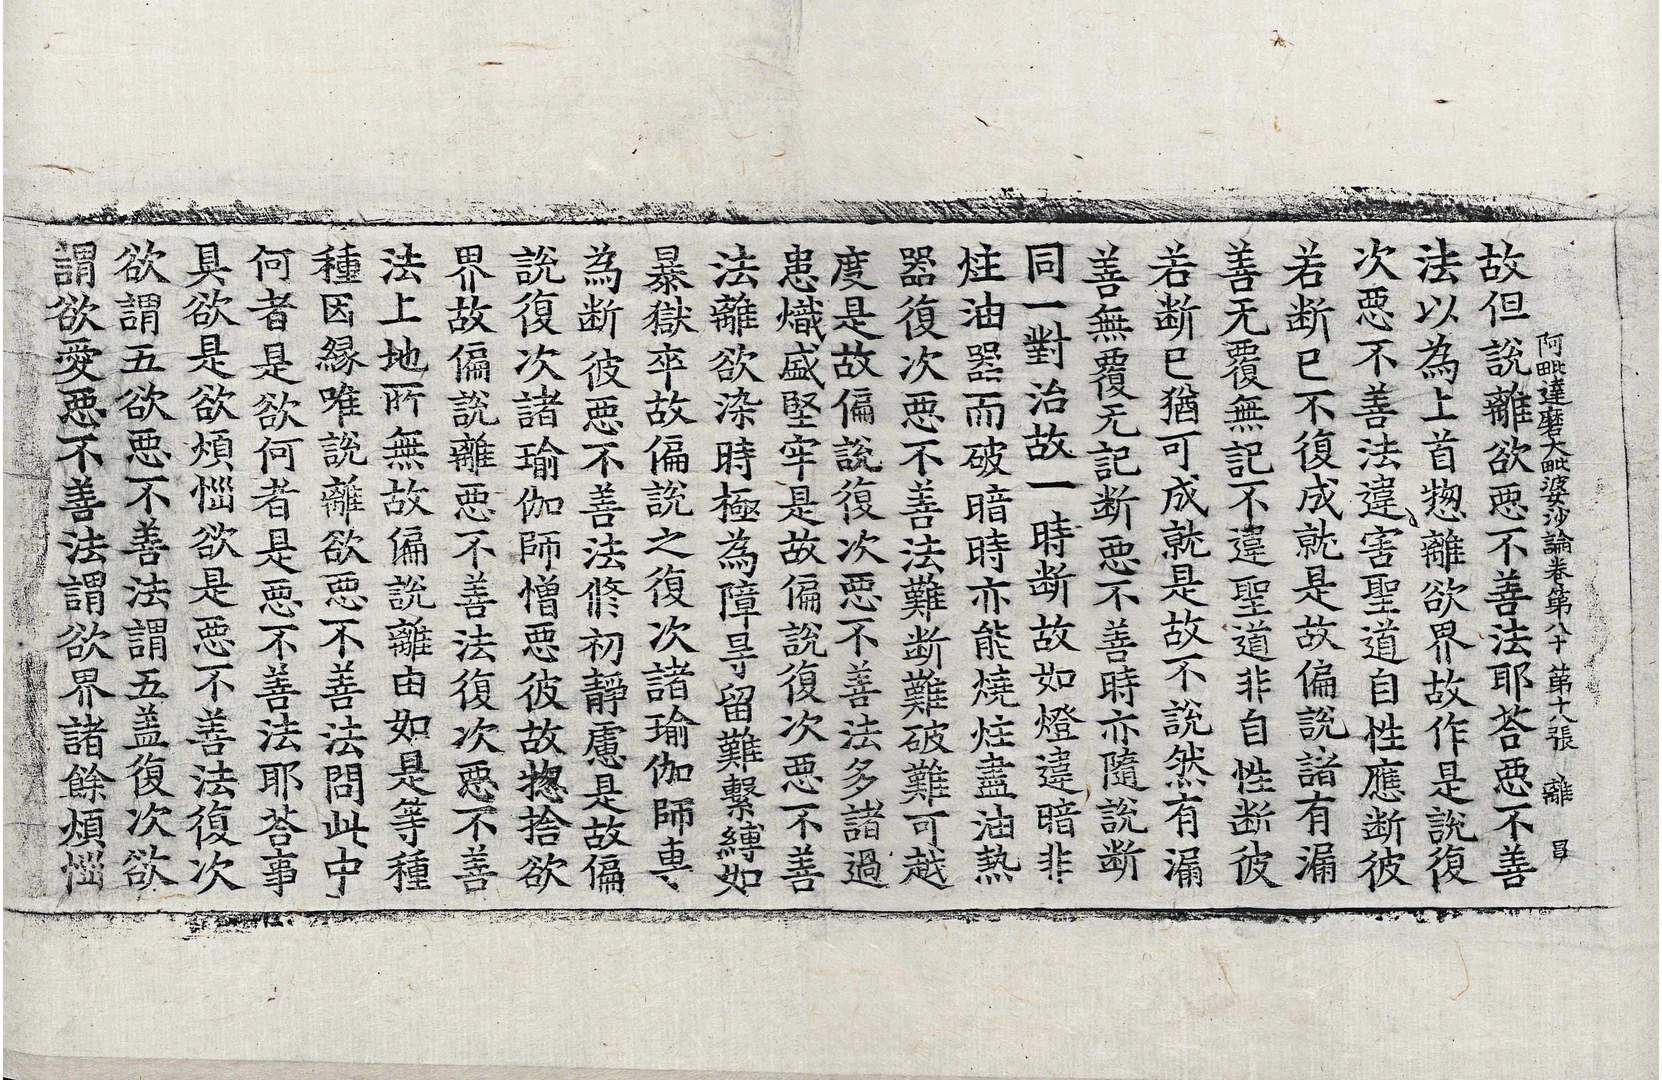 阿毗達磨大毗婆沙論卷第八十　第十八張　離　㝵
故但說離欲惡不善法耶荅惡不善
法以為上首㹅離欲界故作是說復
次惡不善法違害聖道自性應断彼
若断已不復成就是故偏說諸有漏
善无覆無記不違聖道非自性断彼
若断已猶可成就是故不說然有漏
善無覆无記断惡不善時亦隨說断
同一對治故一時断故如燈違暗非
炷油器而破暗時亦能燒炷盡油熱
器復次惡不善法難断難破難可越
度是故偏說復次惡不善法多諸過
患熾盛堅牢是故偏說復次惡不善
法離欲染時極為障㝵留難繫縛如
暴獄卒故偏說之復次諸瑜伽師專
為断彼惡不善法修初靜慮是故偏
說復次諸瑜伽師憎惡彼故㹅捨欲
界故偏說離惡不善法復次惡不善
法上地所無故偏說離由如是等種
種因緣唯說離欲惡不善法問此中
何者是欲何者是惡不善法耶荅事
具欲是欲煩惱欲是惡不善法復次
欲謂五欲惡不善法謂五盖復次欲
謂欲愛惡不善法謂欲界諸餘煩惱